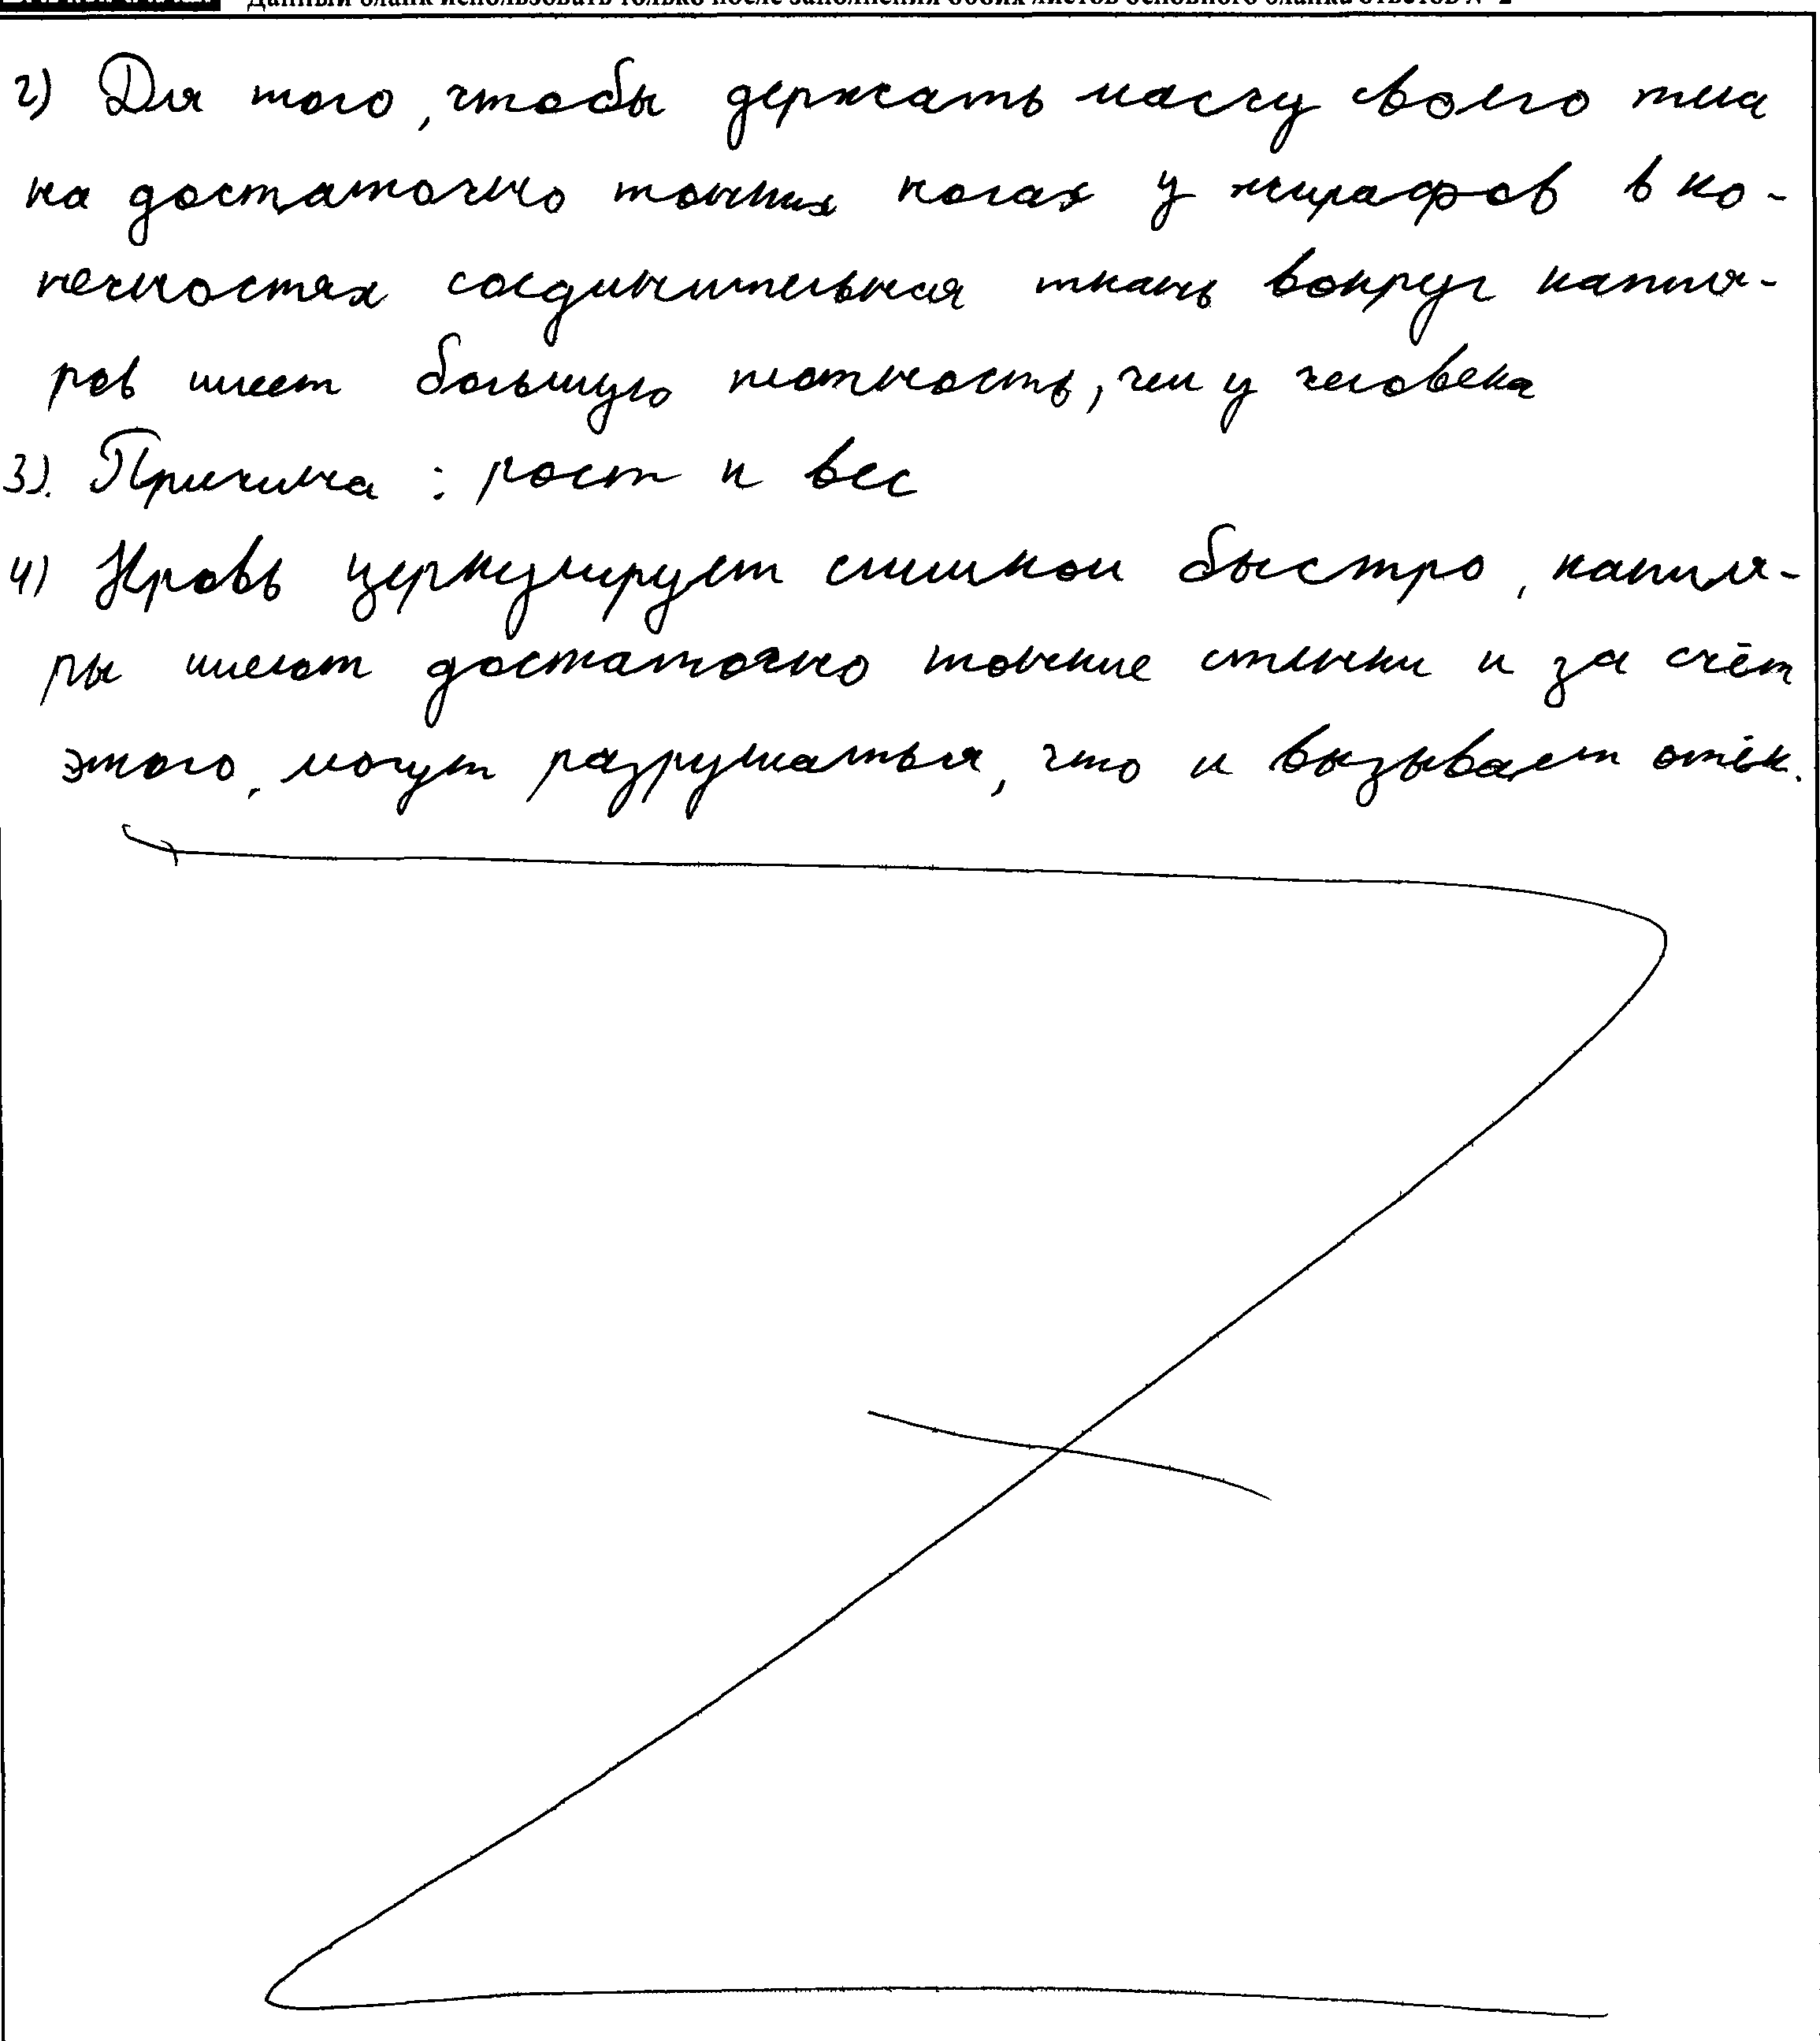 Данный бланк использовать только после заполнения обоих листов основного бланка ответов № 2
2) Для того, чтобы держать массу своего тела
на достаточно тонких ногах у жирафов в ко-
нечностях соединительная ткань вокруг капиля-
ров имеет большую плотность, чем у человека
3). Причина : рост и вес
4) Кровь церкулирует слишком быстро, капиля-
ры имеют достаточно тонкие стенки и за счёт
этого, могут разрушаться, что и вызывает отёк.